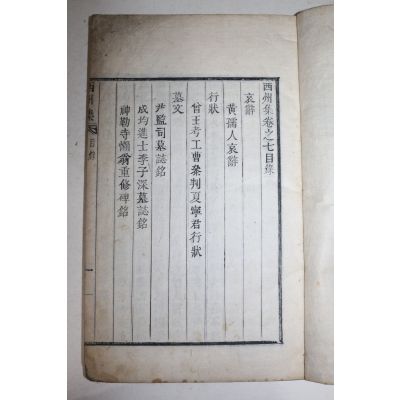 西州集卷之七目錄
哀辭
黃孺人哀辭
行狀
曾王考工曹參判夏寧君行狀
墓文
尹監司墓誌銘
成均進士李子深墓誌銘
神勒寺懶翁重修碑銘
西州集
目錄
一